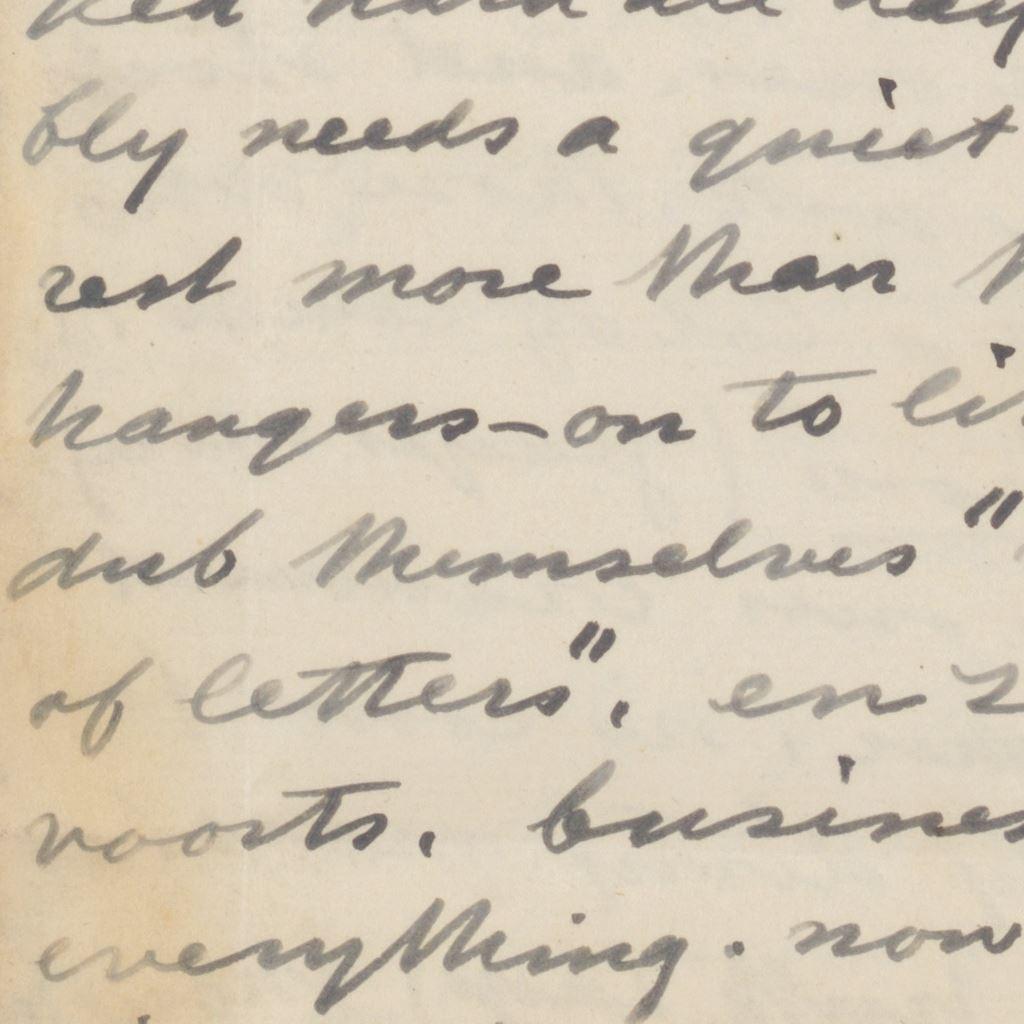 ked hard all day
bly needs a quiet
rest more than
hangers-on to
dub themselves "
of letters". en z
voorts. busines
everything. now